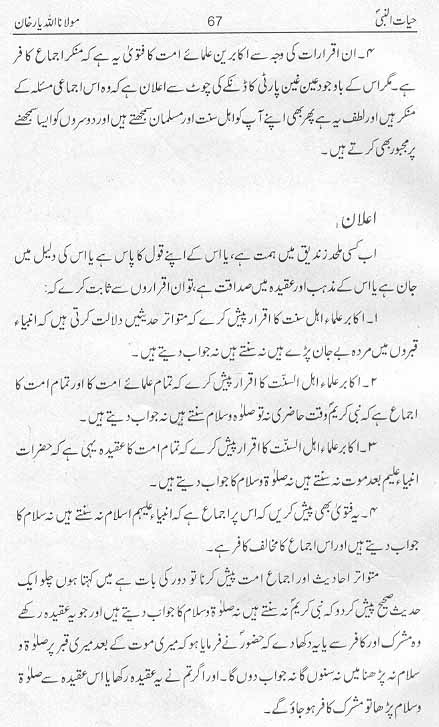 حیات النبیؐ 67 مولانا اللہ یار خان
۴۔ ان اقرارات کی وجہ سے اکابرین علمائے امت کا فتویٰ یہ ہے کہ منکر اجماع کافر
ہے۔ مگر اس کے باوجود عین غین پارٹی کا ڈنکے کی چوٹ سے اعلان ہے کہ وہ اس اجماعی مسئلہ کے
منکر ہیں اور لطف یہ ہے پھر بھی اپنے آپ کو اہل سنت اور مسلمان سمجھتے ہیں اور دوسروں کو ایسا سمجھنے
پر مجبور بھی کرتے ہیں۔
اعلان:
اب کسی ملحد زندیق میں ہمت ہے، یا اس کے اپنے قول کا پاس ہے یا اس کی دلیل میں
جان ہے یا اس کے مذہب اور عقیدہ میں صداقت ہے، تو ان اقراروں سے ثابت کرے کہ:
۱۔ اکابر علماء اہل سنت کا اقرار پیش کرے کہ متواتر حدیثیں دلالت کرتی ہیں کہ انبیاء
قبروں میں مردہ بے جان پڑے ہیں نہ سنتے ہیں نہ جواب دیتے ہیں۔
۲۔ اکابر علماء اہل السنّت کا اقرار پیش کرے کہ تمام علمائے امت کا اور تمام امت کا
اجماع ہے کہ نبی کریمؐ وقت حاضری نہ تو صلوٰہ وسلام سنتے ہیں نہ جواب دیتے ہیں۔
۳۔ اکابر علماء اہل السنّت کا اقرار پیش کرے کہ تمام امت کا عقیدہ یہی ہے کہ حضرات
انبیاء علیہم بعد موت نہ سنتے ہیں نہ صلوٰۃ وسلام کا جواب دیتے ہیں۔
۴۔ یہ فتویٰ بھی پیش کریں کہ اس پر اجماع ہے کہ انبیاء علیہم اسلام نہ سنتے ہیں نہ سلام کا
جواب دیتے ہیں اور اس اجماع کا مخالف کافر ہے۔
متواتر احادیث اور اجماع امت پیش کرنا تو دور کی بات ہے میں کہتا ہوں چلو ایک
حدیث صحیح پیش کر دو کہ نبی کریمؐ نہ سنتے ہیں نہ صلوٰۃ وسلام کا جواب دیتے ہیں اور جو یہ عقیدہ رکھے
وہ مشرک اور کافر ہے یا یہ دکھا دے کہ حضورؐ نے فرمایا ہو کہ میری موت کے بعد میری قبر پر صلوٰۃ و
سلام نہ پڑھنا میں نہ سنوں گا نہ جواب دوں گا۔ اور اگر تم نے یہ عقیدہ رکھا یا اس عقیدہ سے صلوٰۃ
وسلام پڑھا تو مشرک کافر ہو جاؤ گے۔